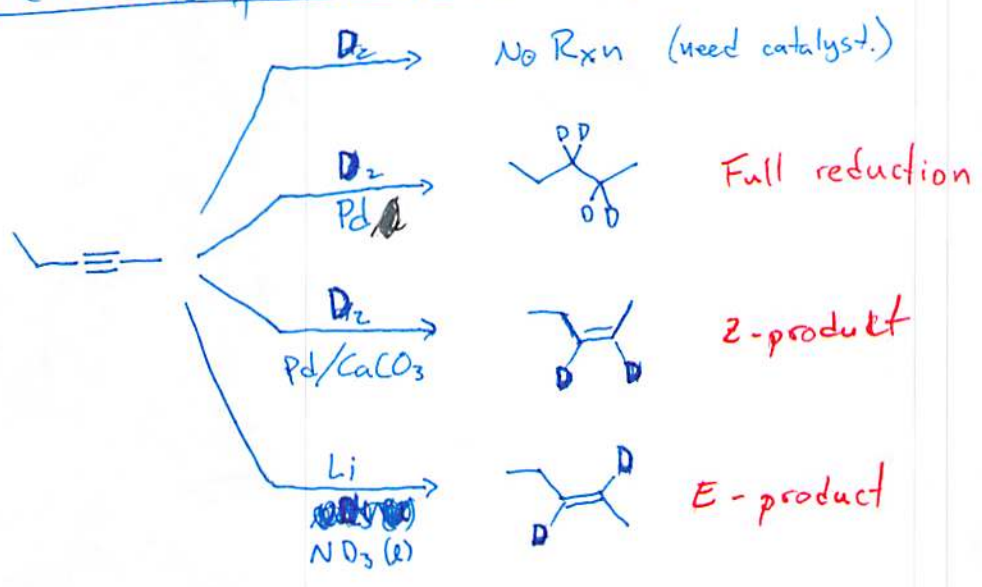 D₂
No Rxn (need catalyst.)
D₂
Pd
D D
D D
Full reduction
D₂
Pd/CaCO₃
D D
Z-produkt
Li
ND₃ (l)
D
D
E - product